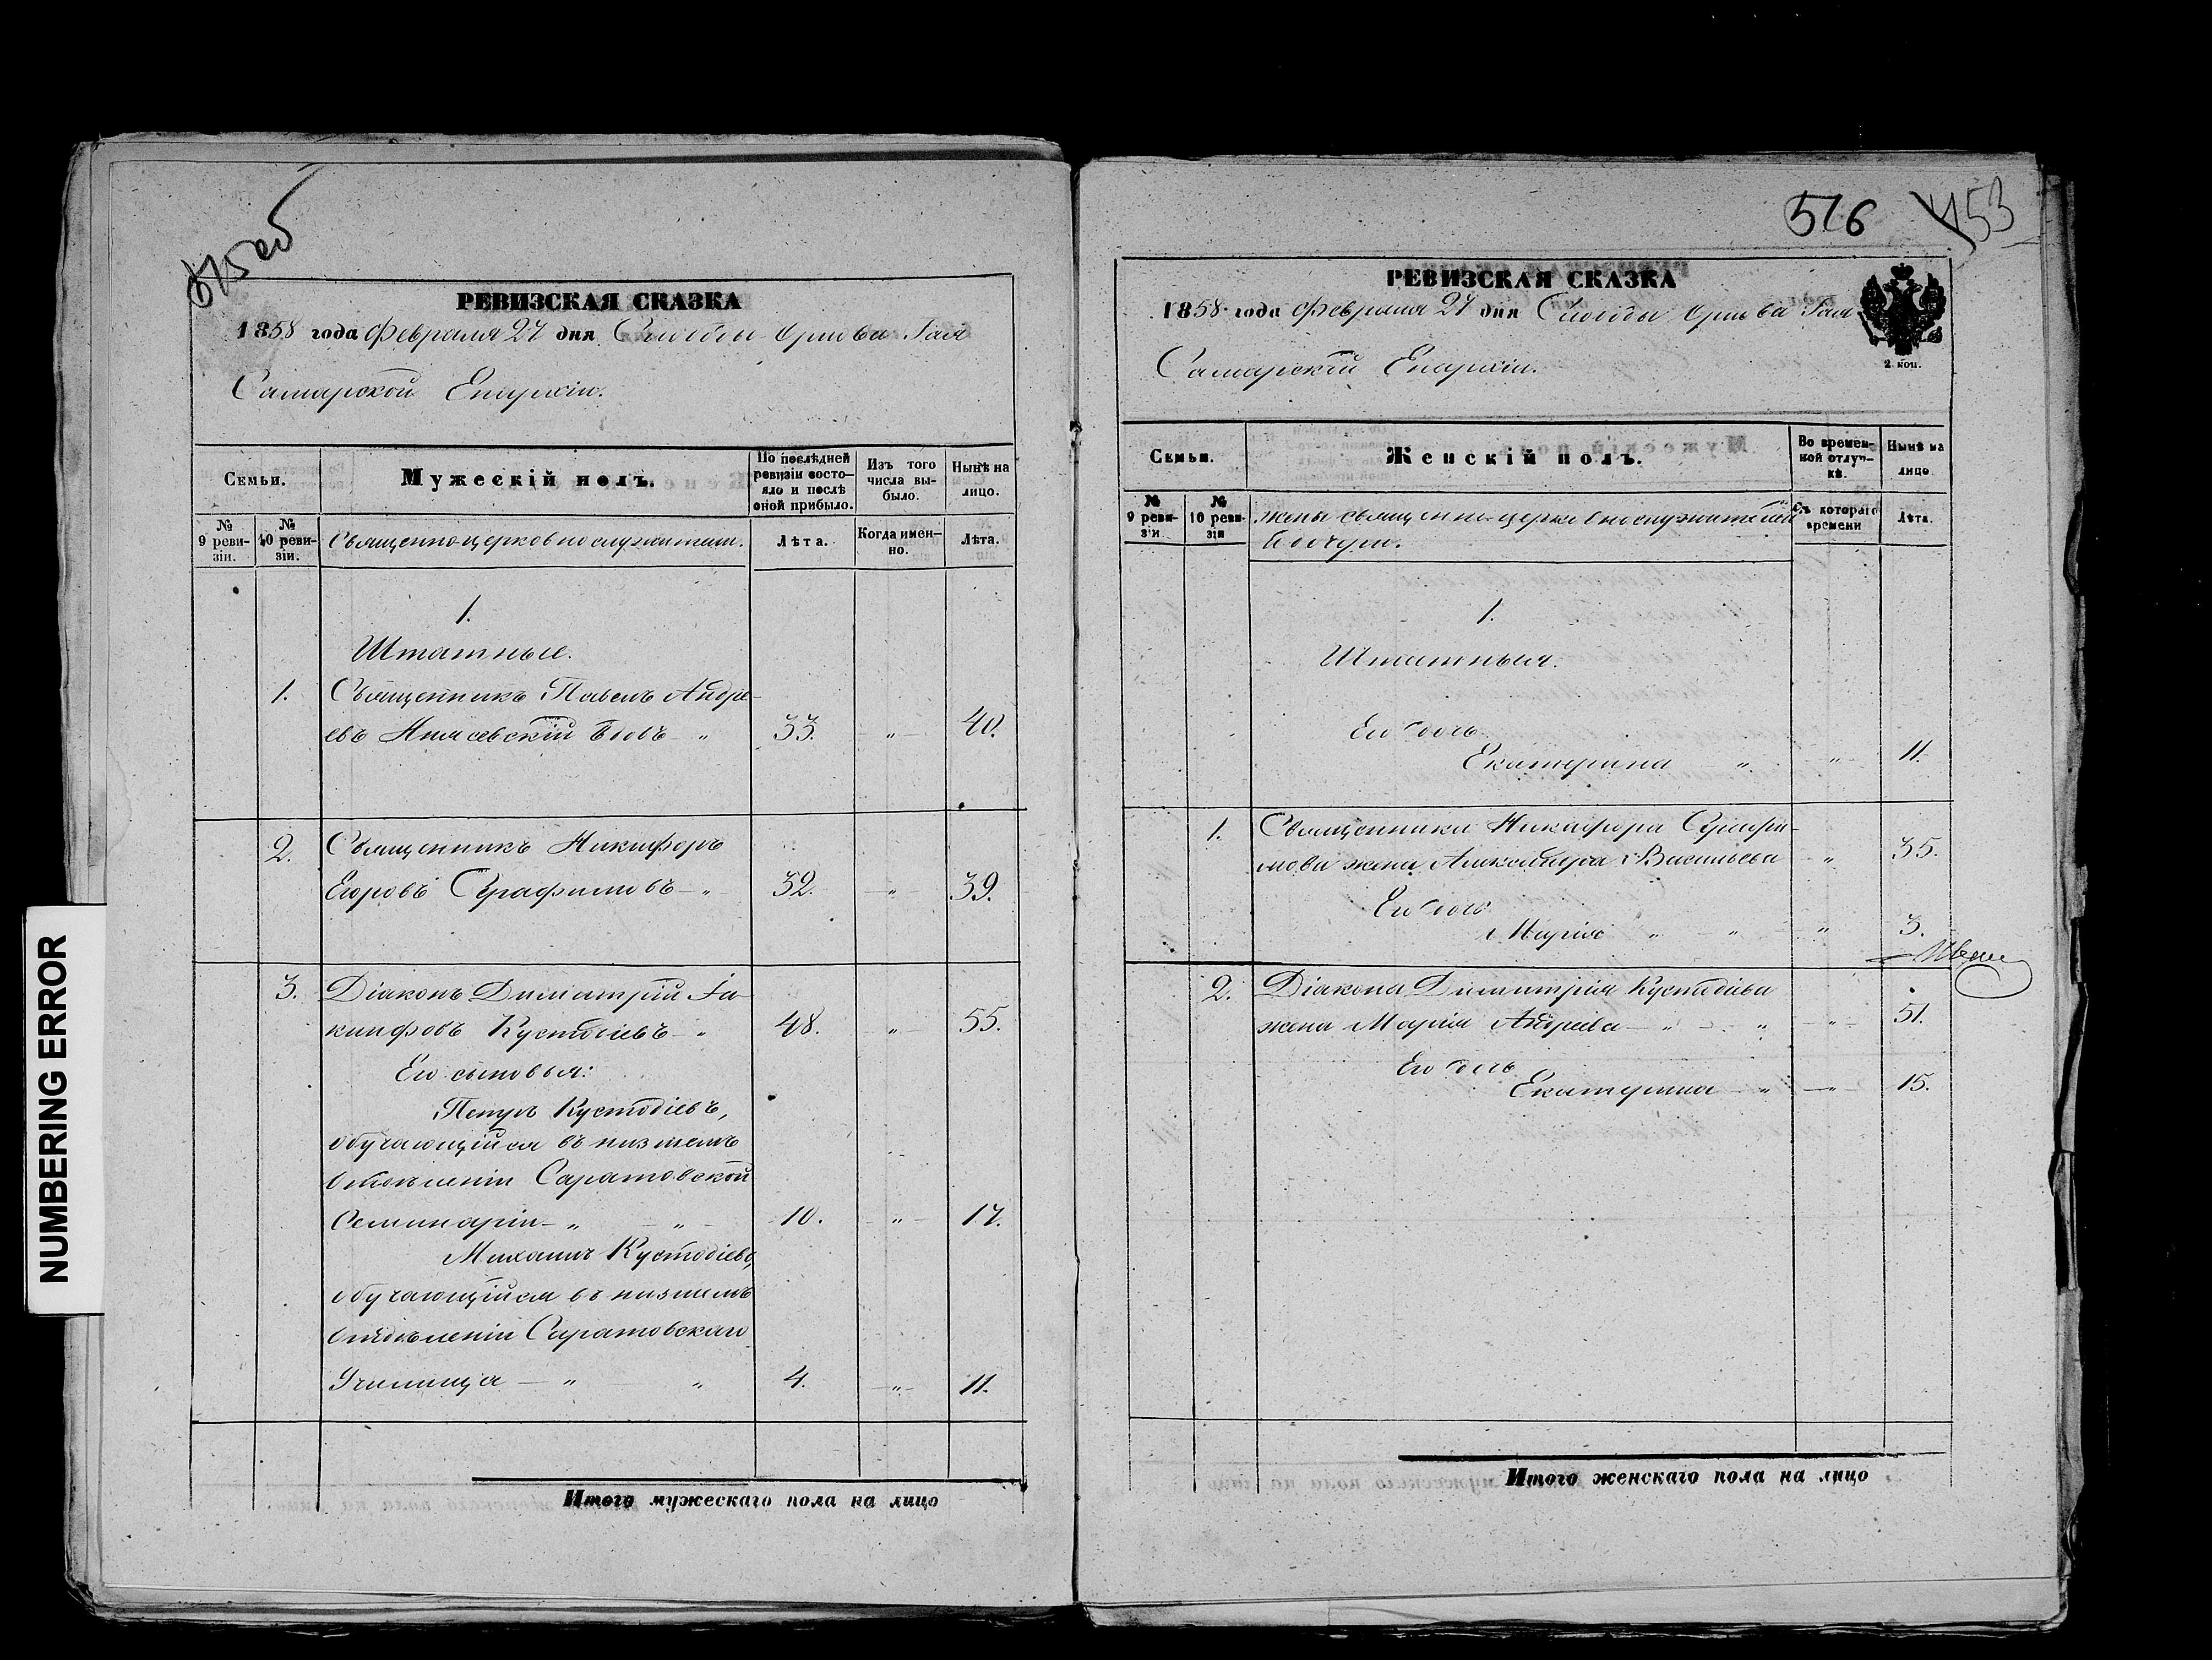 515 об
РЕВИЗСКАЯ СКАЗКА
1858 года Февраля 27 дня Слободы Орлова Гая
Самарской Епархіи.
Семьи.
Мужескій полъ.
По послѣдней ревизіи состо-
яло и послѣ
оной прибыло.
Изъ того
числа вы-
было.
Нынѣ на
лицо.
№
9 реви-
зіи.
№
10 реви-
зіи.
Священно-церковнослужители.
Лѣта.
Когда имен-
но.
Лѣта.
1.
Штатные.
1. Священникъ Павелъ Андре-
евъ вдовъ „ 33. „ 40.
2. Священникъ Никифоръ
Егоровъ Серафимовъ „ 32. „ 39.
3. Діаконъ Димитрій Іа-
кинфовъ Кустодіевъ „ 48. „ 55.
Его сыновья:
Петръ Кустодіевъ,
обучающійся въ низшемъ
отдѣленіи Саратовской
Семинаріи „ „ 10. „ 17.
Михаилъ Кустодіевъ,
обучающійся въ низшемъ
отдѣленіи Саратовскаго
Училища „ „ 4. „ 11.
Итого мужескаго пола на лицо
NUMBERING ERROR
516 453
РЕВИЗСКАЯ СКАЗКА
1858 года Февраля 27 дня Слободы Орлова Гая
Самарской Епархіи.
2 коп.
Семьи.
Женскій полъ.
Во времен-
ной отлуч-
кѣ.
Нынѣ на
лицо
№
9 реви-
зіи
№
10 реви-
зіи
Жены священно-церковнослужителей
и дочери.
Съ котораго
времени
Лѣта.
1.
Штатныя.
Его дочь
Екатерина „ „ 11.
1. Священника Никифора Серафи-
мова жена Александра Васильева „ 35.
Его дочь
Марія „ „ „ 3.
2. Діакона Димитрія Кустодіева
жена Марія Андреева „ „ „ 51.
Его дочь
Екатерина „ „ 15.
Итого женскаго пола на лицо